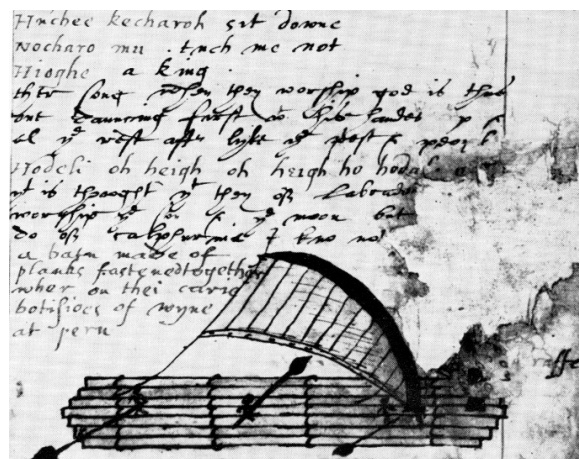 Hnchee kecharoh sit downe
Nocharo mu . tuch me not
Hioghe a king
ther song when they worship god is thus
one dauncing first wt his handes up
al ye rest after lyke ye prest & peopl
Hodeli oh heigh oh heigh ho hodali
yt is thought yt they of Labrador
worship ye son & ye moon but
do of calphurnia I kno not
a balm made of
planks fastened together
wher on thei carie
botisioes of wyne
at peru
raffe